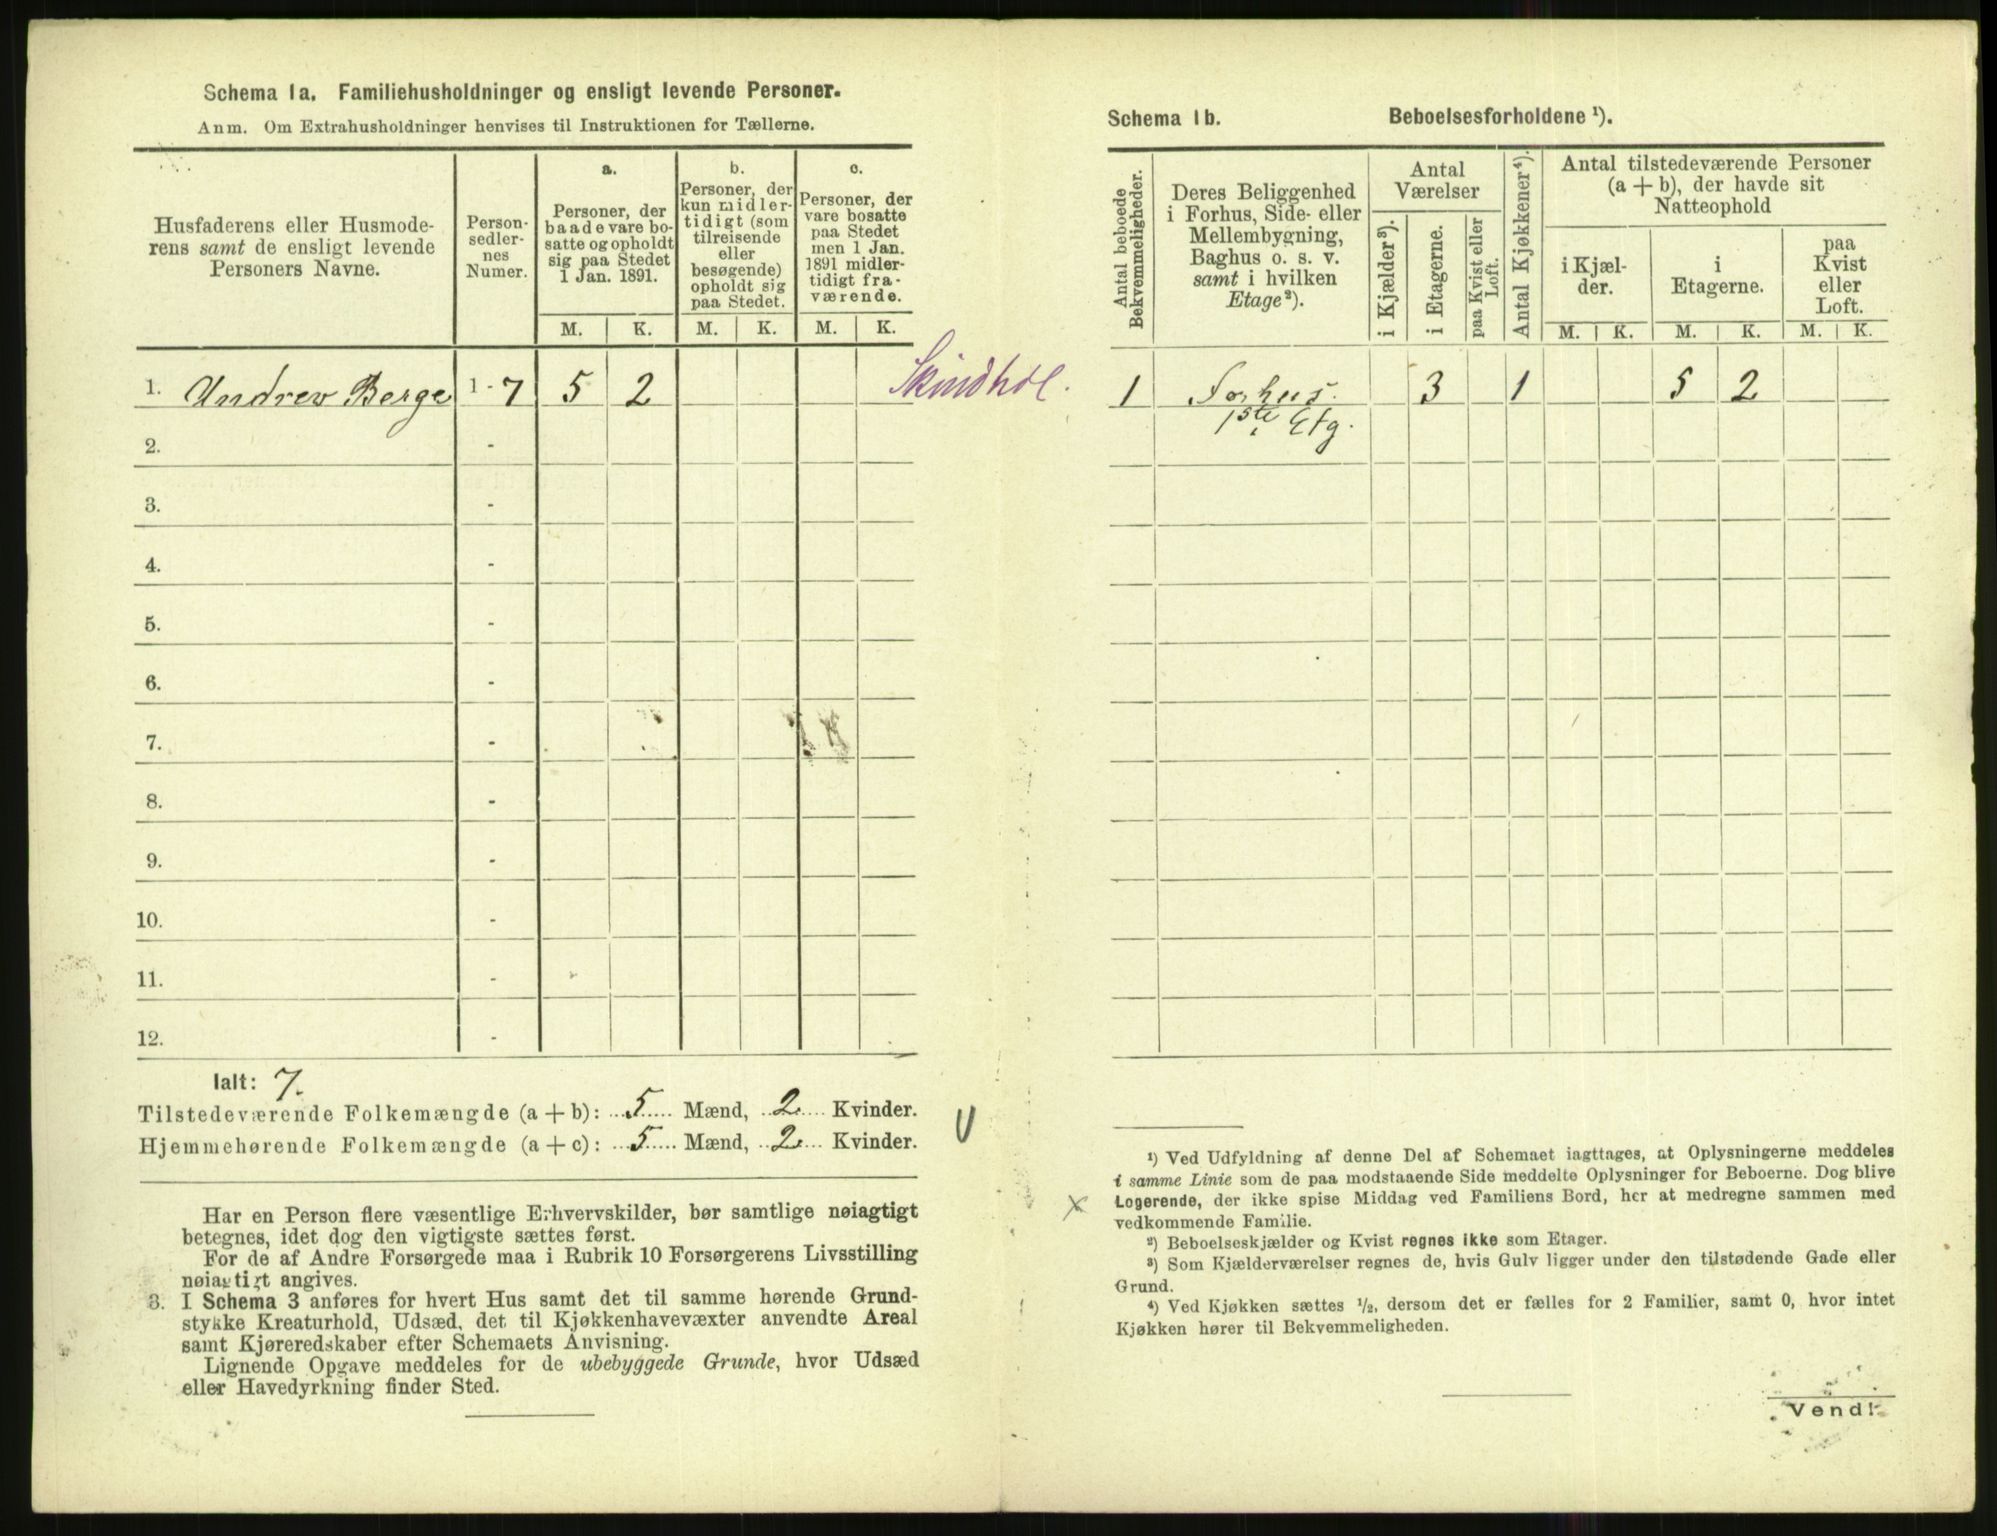 Schema 1a. Familiehusholdninger og ensligt levende Personer.
Anm. Om Extrahusholdninger henvises til Instruktionen for Tællerne.
Husfaderens eller Husmode-
rens samt de ensligt levende
Personers Navne.
Person-
sedler-
nes
Numer.
a.
Personer, der
baade vare bo-
satte og opholdt
sig paa Stedet
1 Jan. 1891.
b.
Personer, der
kun midler-
tidigt (som
tilreisende
eller
besøgende)
opholdt sig
paa Stedet.
c.
Personer, der
vare bosatte
paa Stedet
men 1 Jan.
1891 midler-
tidigt fra-
værende.
M. K. M. K. M. K.
1. Andrew Berge 1-7 5 2
2. -
3. -
4. -
5. -
6. -
7. -
8. -
9. -
10. -
11. -
12. -
Ialt: 7.
Tilstedeværende Folkemængde (a + b): 5 Mænd, 2 Kvinder.
Hjemmehørende Folkemængde (a + c): 5 Mænd, 2 Kvinder.
Har en Person flere væsentlige Erhvervskilder, bør samtlige nøiagtigt
betegnes, idet dog den vigtigste sættes først.
For de af Andre Forsørgede maa i Rubrik 10 Forsørgerens Livsstilling
nøiagtigt angives.
3. I Schema 3 anføres for hvert Hus samt det til samme hørende Grund-
stykke Kreaturhold, Udsæd, det til Kjøkkenhavevæxter anvendte Areal
samt Kjøreredskaber efter Schemaets Anvisning.
Lignende Opgave meddeles for de ubebyggede Grunde, hvor Udsæd
eller Havedyrkning finder Sted.
Schema 1b. Beboelsesforholdene ¹).
Antal beboede
Bekvemmeligheder.
Deres Beliggenhed
i Forhus, Side- eller
Mellembygning,
Baghus o. s. v.
samt i hvilken
Etage²).
Antal
Værelser
i Kjælder ³).
i Etagerne.
paa Kvist eller
Loft.
Antal Kjøkkener⁴).
Antal tilstedeværende Personer
(a + b), der havde sit
Natteophold
i Kjæl-
der.
i
Etagerne.
paa
Kvist
eller
Loft.
M. K. M. K. M. K.
1 Forhus. 3 1 5 2
1ste Etg.
¹) Ved Udfyldning af denne Del af Schemaet iagttages, at Oplysningerne meddeles
i samme Linie som de paa modstaaende Side meddelte Oplysninger for Beboerne. Dog blive
Logerende, der ikke spise Middag ved Familiens Bord, her at medregne sammen med
vedkommende Familie.
²) Beboelseskjælder og Kvist regnes ikke som Etager.
³) Som Kjælderværelser regnes de, hvis Gulv ligger under den tilstødende Gade eller
Grund.
⁴) Ved Kjøkken sættes ½, dersom det er fælles for 2 Familier, samt 0, hvor intet
Kjøkken hører til Bekvemmeligheden.
Vend!